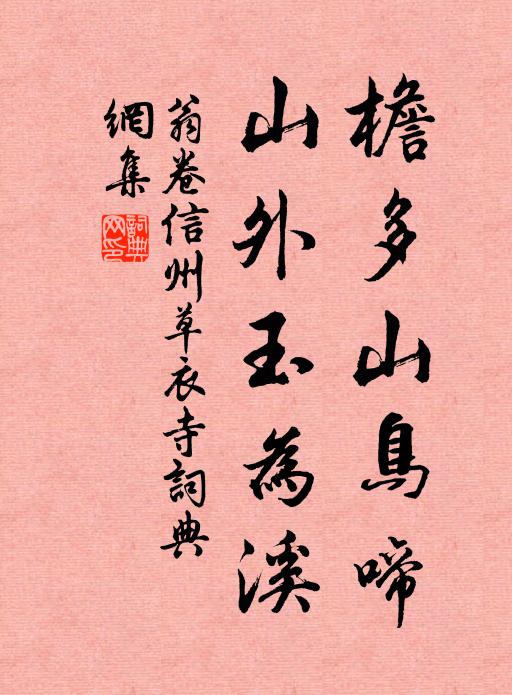 檐多山鳥啼
山外玉為溪
翁卷信州草衣寺詞典
網集
詞典網印